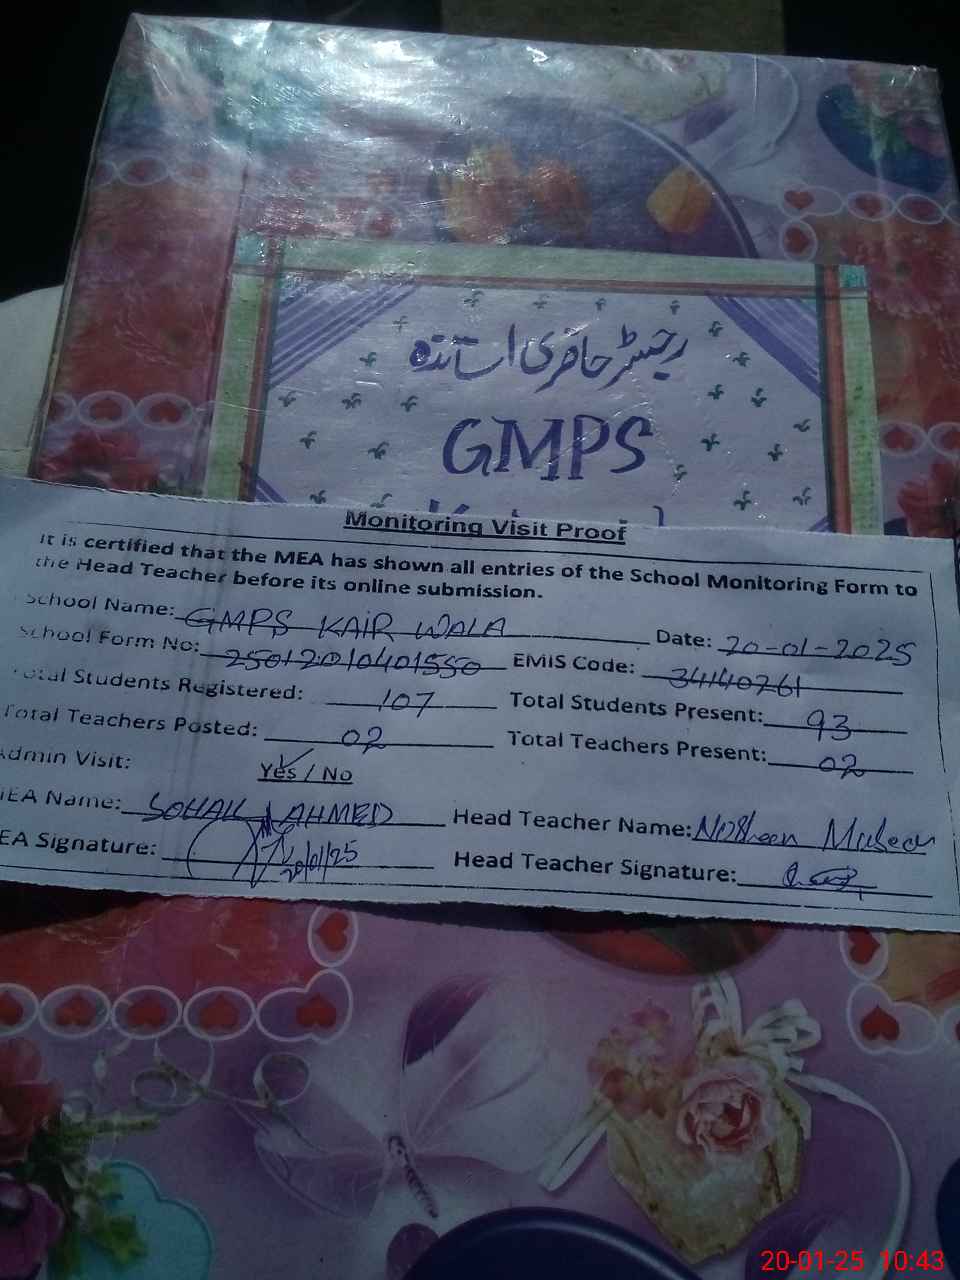 رجسٹر حاضری اساتذہ
GMPS
Monitoring Visit Proof
It is certified that the MEA has shown all entries of the School Monitoring Form to
the Head Teacher before its online submission.
School Name: GMPS KAIR WALA Date: 20-01-2025
School Form No: 25012010401550 EMIS Code: 34140261
Total Students Registered: 107 Total Students Present: 93
Total Teachers Posted: 02 Total Teachers Present: 02
Admin Visit: Yes / No
MEA Name: SOHAIL AHMED Head Teacher Name: Nosheen
MEA Signature: 20/01/25 Head Teacher Signature:
20-01-25 10:43